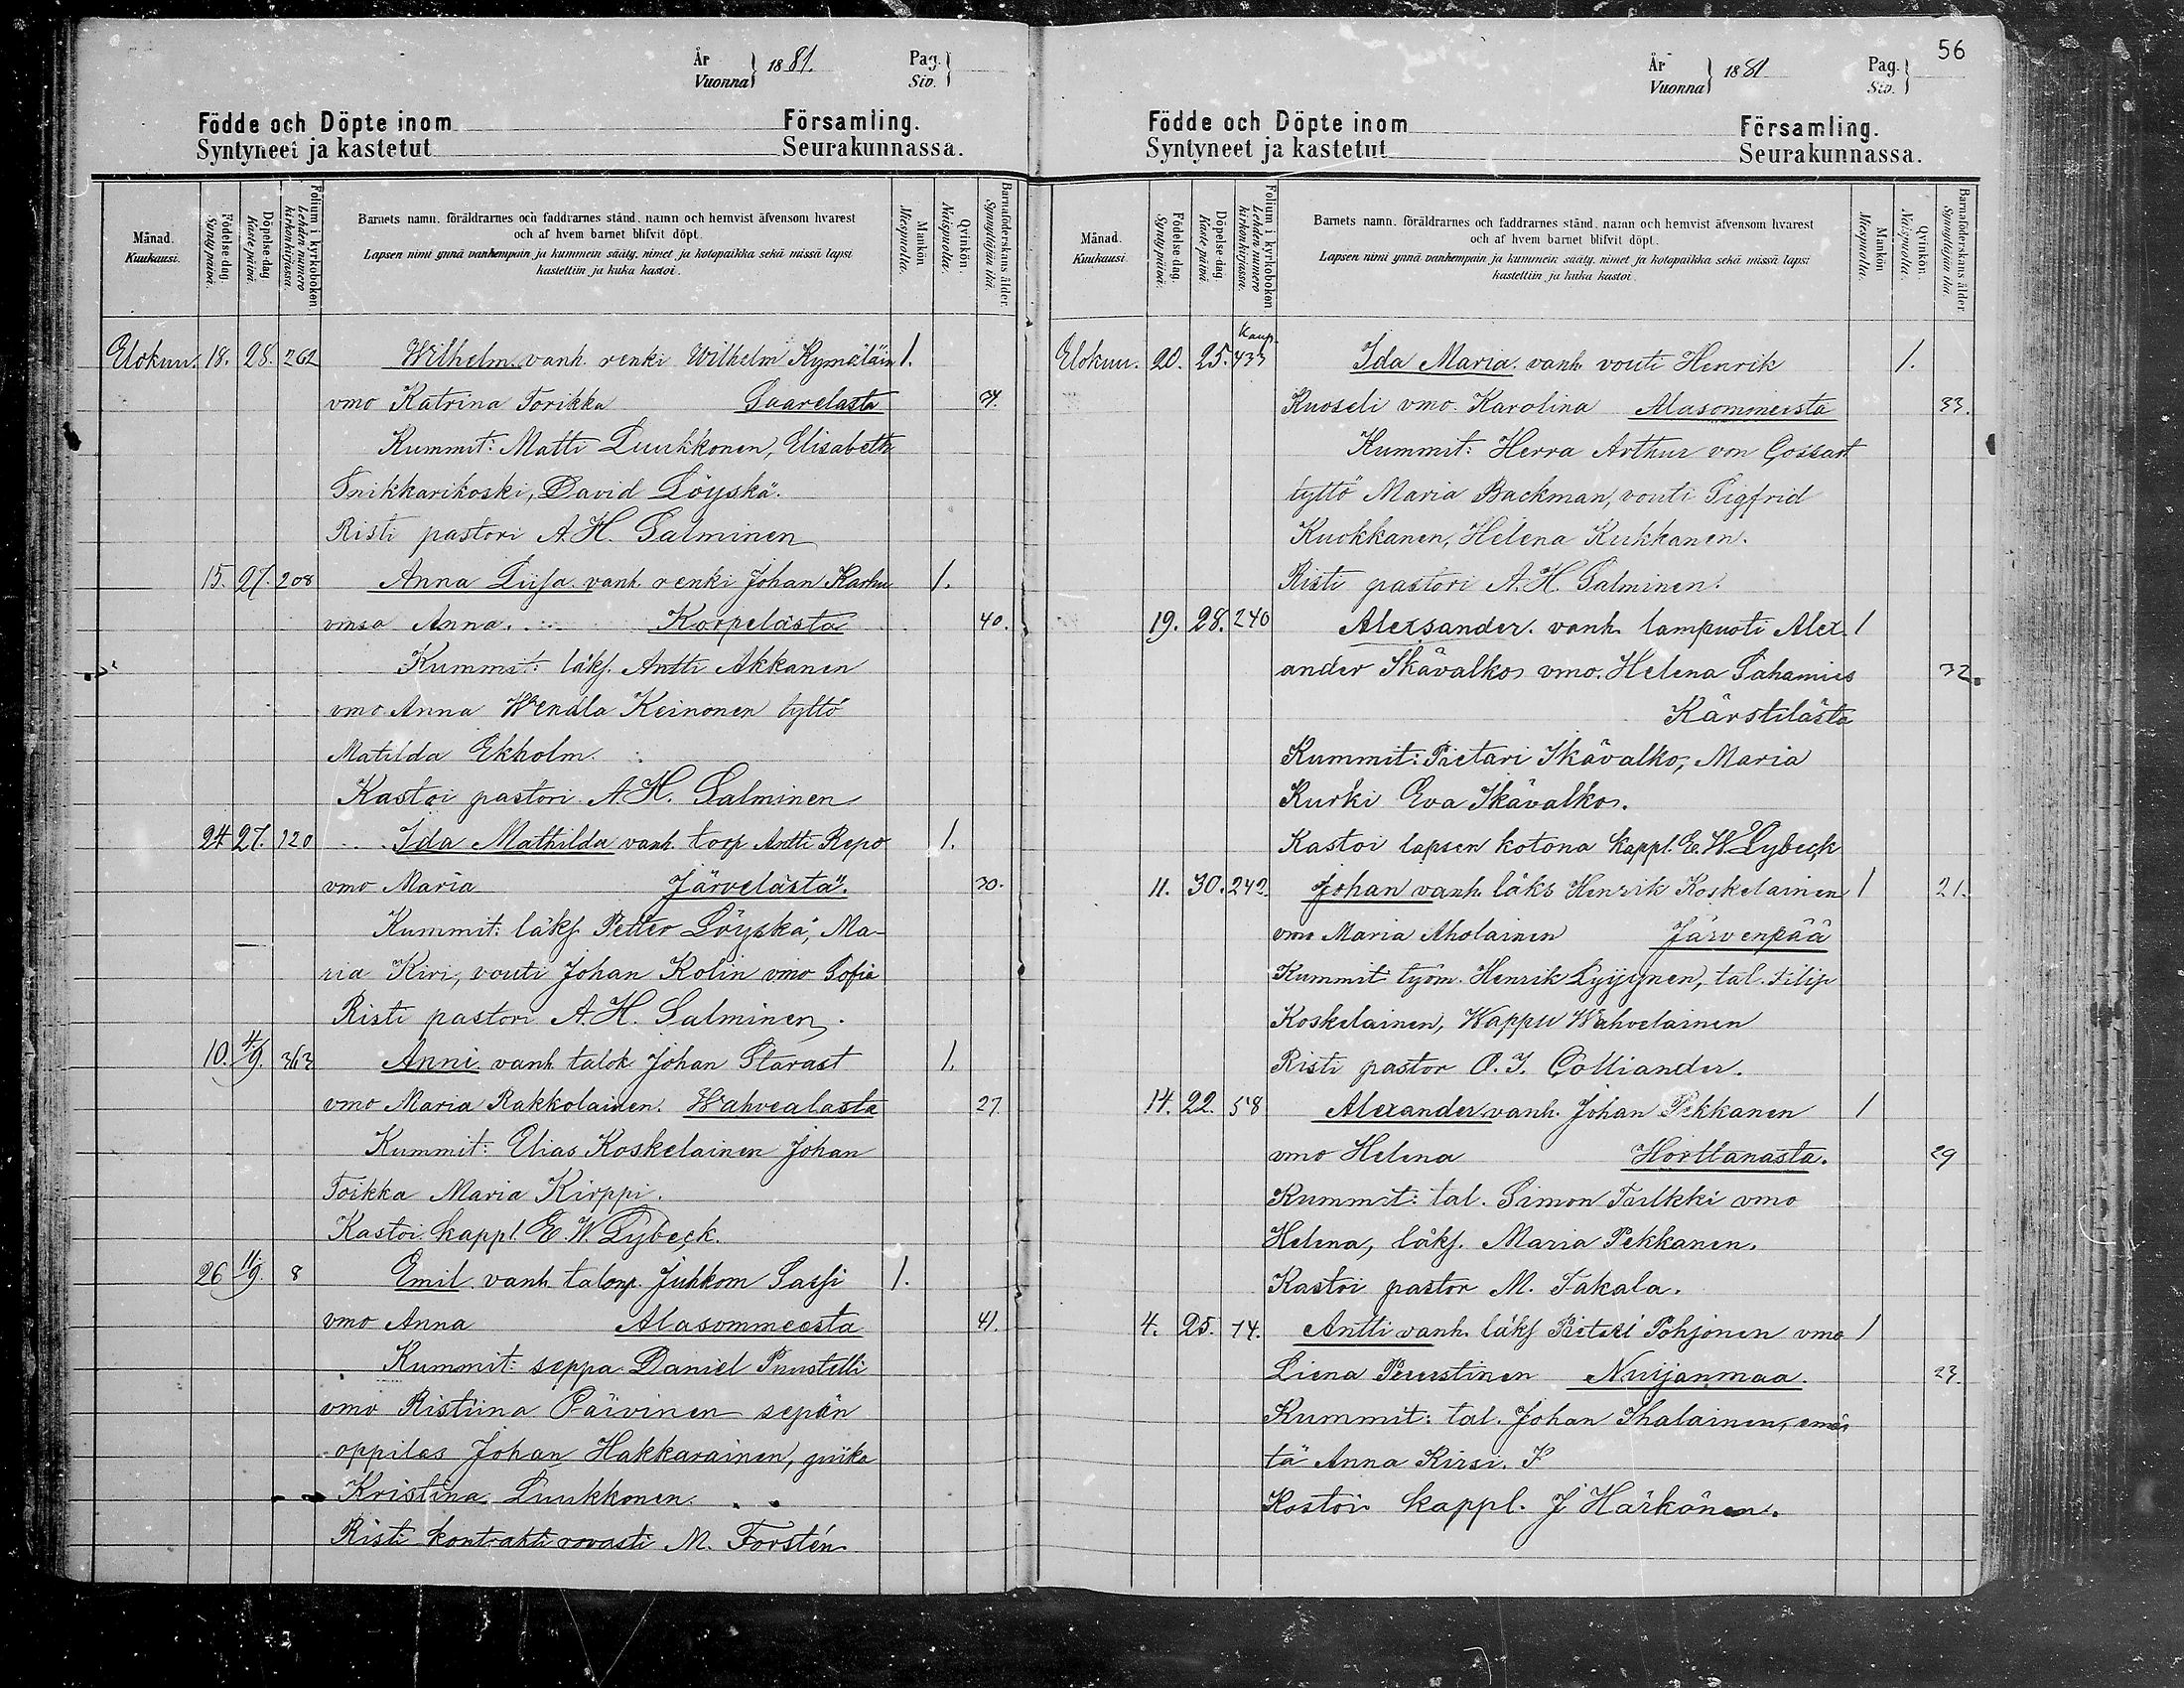 År
Vuonna } 1881.
Pag.
Siv. }
Födde och Döpte inom Församling.
Syntyneet ja kastetut Seurakunnassa.
Månad.
Kuukausi.
Födelse-dag.
Syntypäivä.
Döpelse-dag.
Kastepäivä.
Folium i kyrkoboken
Lehden numero
kirkonkirjassa.
Barnets namn, föräldrarnes och faddrarnes stånd, namn och hemvist äfvensom hvarest
och af hvem barnet blifvit döpt.
Lapsen nimi ynnä vanhempain ja kummein sääty, nimet ja kotopaikka sekä missä lapsi
kastettiin ja kuka kastoi.
Mankön.
Miespuolia.
Qvinkön.
Naispuolia.
Barnaföderskans ålder
Synnyttäjän ikä.
Elokuu. 18. 28. 262 Wilhelm. vanh. renki Wilhelm Kymäläin 1.
vmo Katrina Torikka Saarelasta 34.
Kummit: Matti Luukkonen, Elisabeth
Snikkarikoski, David Löyskä.
Risti pastori A. H. Salminen
15. 27. 208 Anna Liisa. vanh. renki Johan Karhu 1.
vmsa Anna. Korpelasta 40.
Kummit: läks. Antti Akkanen
vmo Anna Wendla Keinonen tyttö
Matilda Ekholm.
Kastoi pastori A. H. Salminen
24 27. 120 Ida Mathilda vanh. torp Antti Repo 1.
vmo Maria Järvelästä. 30.
Kummit: läks. Petter Löyskä, Ma-
ria Kiri, vouti Johan Kolin vmo Sofia
Risti pastori A. H. Salminen.
10. 4/9. 363 Anni vanh. talok. Johan Starast 1.
vmo Maria Rakkolainen. Wahvealasta 27.
Kummit: Elias Koskelainen Johan
Toikka Maria Kirppi.
Kastoi kappl E. W. Lybeck.
26 11/9. 8 Emil vanh. talonp. Juhkom Sassi 1.
vmo Anna Alasommeesta 41.
Kummit: seppa Daniel Puustelli
vmo Ristiina Päivinen sepän
oppilas Johan Hakkarainen, piika
Kristina Luukkonen.
Risti kontrahti rovasti M. Forstén
56
År
Vuonna } 1881
Pag.
Siv. }
Födde och Döpte inom Församling.
Syntyneet ja kastetut Seurakunnassa.
Månad.
Kuukausi
Födelse-dag.
Syntypäivä.
Döpelse-dag.
Kastepäivä.
Folium i kyrkoboken
Lehden numero
kirkonkirjassa.
Barnets namn, föräldrarnes och faddrarnes stånd, namn och hemvist äfvensom hvarest
och af hvem barnet blifvit döpt.
Lapsen nimi ynnä vanhempain ja kummein sääty, nimet ja kotopaikka sekä missä lapsi
kastettiin ja kuka kastoi.
Mankön
Miespuolia.
Qvinkön.
Naispuolia.
Barnaföderskans ålder
Synnyttäjän ikä.
Kaup.
Elokuu. 20. 25. 433 Ida Maria. vanh. vouti Henrik 1.
Kuoseli vmo. Karolina Alasommeesta 33.
Kummit: Herra Arthur von Cossart
tyttö Maria Backman, vouti Sigfrid
Kuokkanen, Helena Kukkanen.
Risti pastori A. H. Salminen.
19. 28. 240 Alexsander. vanh. lampuoti Alex. 1
ander Ikävalko vmo. Helena Sahamies 32.
Kärstilästä
Kummit: Pietari Ikävalko, Maria
Kurki Eva Ikävalko.
Kastoi lapsen kotona kappl. E. W. Lybeck
11. 30. 242 Johan vanh. läks Henrik Koskelainen 1 21.
vmo Maria Aholainen Järvenpää
Kummit työm. Henrik Lyijynen, tal. Filip
Koskelainen, Wappu Wahvelainen
Risti pastor O. I. Colliander.
14. 22. 58 Alexander vanh. Johan Pekkanen 1
vmo Helena Horttanasta. 29
Kummit: tal. Simon Tulkki vmo
Helena, läks. Maria Pekkanen.
Kastoi pastor M. Takala.
4. 25. 74. Antti vanh. läks Pietari Pohjonen vmo 1
Liena Puustinen Nuijanmaa. 23.
Kummit: tal. Johan Ihalainen, emän
tä Anna Kirsi. K
Kastoi kappl. J Härkönen.